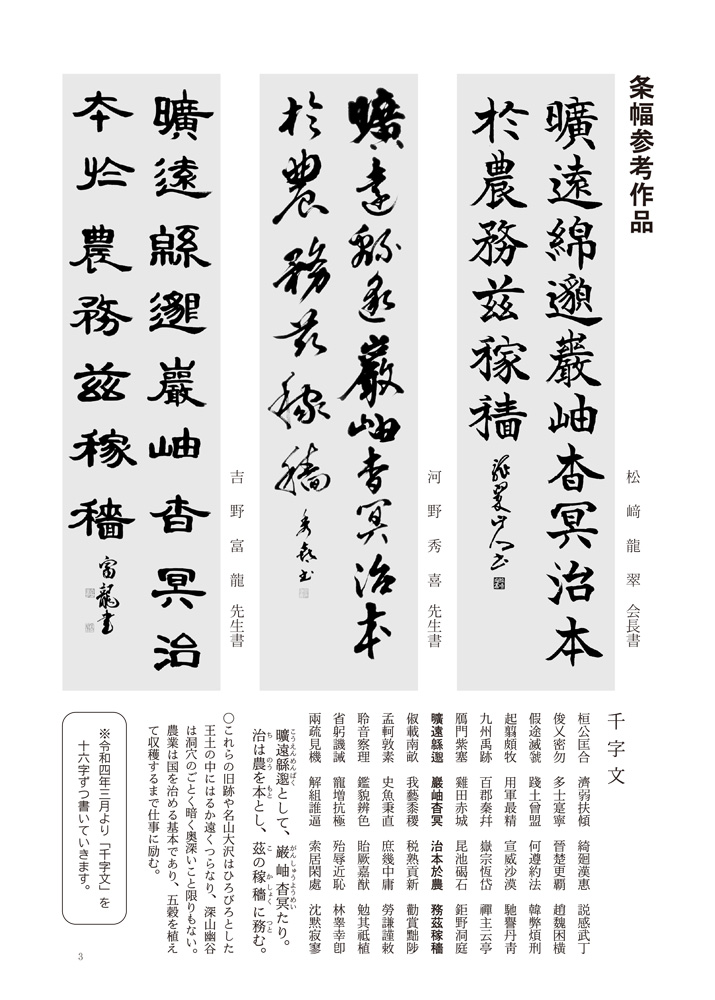 条幅参考作品
曠遠綿邈巖岫杳冥治本
於農務兹稼穡
龍翠山人書
松﨑龍翠 会長書
曠遠緜邈巖岫杳冥治本
於農務兹稼穡
秀喜書
河野秀喜 先生書
曠遠緜邈巖岫杳冥治
本於農務兹稼穡
富龍書
吉野富龍 先生書
千字文
桓公匡合 濟弱扶傾 綺廻漢惠 説感武丁
俊乂密勿 多士寔寧 晉楚更覇 趙魏困橫
假途滅虢 踐土會盟 何遵約法 韓弊煩刑
起翦頗牧 用軍最精 宣威沙漠 馳譽丹靑
九州禹跡 百郡秦幷 嶽宗恆岱 禪主云亭
鴈門紫塞 雞田赤城 昆池碣石 鉅野洞庭
曠遠緜邈 巖岫杳冥 治本於農 務茲稼穡
俶載南畝 我藝黍稷 税熟貢新 勸賞黜陟
孟軻敦素 史魚秉直 庶幾中庸 勞謙謹敕
聆音察理 鑑貌辨色 貽厥嘉猷 勉其祗植
省躬譏誡 寵增抗極 殆辱近恥 林皋幸卽
兩疏見機 解組誰逼 索居閑處 沈默寂寥
曠遠緜邈として、巌岫杳冥たり。
こうえんめんばく がんしゅうようめい
治は農を本とし、茲の稼穡に務む。
ち のう もと こ かしょく つと
○これらの旧跡や名山大沢はひろびろとした
王土の中にはるか遠くつらなり、深山幽谷
は洞穴のごとく暗く奥深いこと限りもない。
農業は国を治める基本であり、五穀を植え
て収穫するまで仕事に励む。
※令和四年三月より「千字文」を
十六字ずつ書いていきます。
3